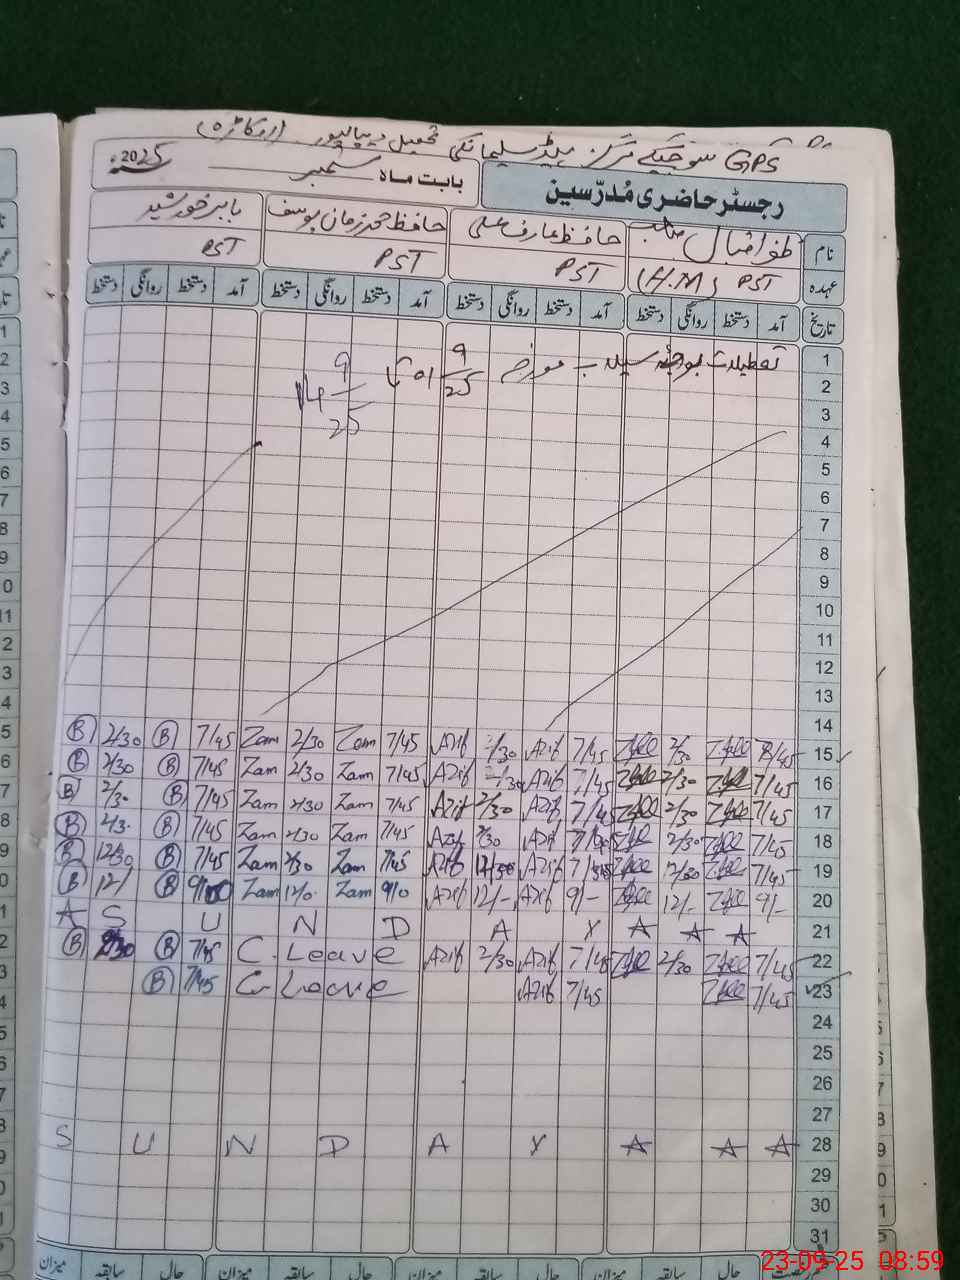 GPS سوجیکے مرکز ہیڈ سلیمانکی تحصیل دیپالپور (اوکاڑہ)
رجسٹر حاضری مُدرّسین
بابت ماہ ستمبر 2025
نام ظفر اقبال صاحب حافظ عارف علی حافظ محمد زمان یوسف بابر خورشید
عہدہ PST (H.M) PST PST PST
تاریخ آمد دستخط روانگی دستخط آمد دستخط روانگی دستخط آمد دستخط روانگی دستخط آمد دستخط روانگی دستخط
1 تعطیلات بوجہ سیلاب مورخہ 01 9/25 تا 14 9/25
2
3
4
5
6
7
8
9
10
11
12
13
14
(B) 2/30 (B) 7/45 Zam 2/30 Zam 7/45 Azif 2/30 Azif 7/45 2/30 7/45 15
(B) 2/30 (B) 7/45 Zam 2/30 Zam 7/45 Azif 2/30 Azif 7/45 2/30 7/45 16
(B) 2/30 (B) 7/45 Zam 2/30 Zam 7/45 Azif 2/30 Azif 7/45 2/30 7/45 17
(B) 2/30 (B) 7/45 Zam 2/30 Zam 7/45 Azif 2/30 Azif 2/30 7/45 18
(B) 12/30 (B) 7/45 Zam Zam 7/45 Azif 12/30 Azif 12/30 7/45 19
(B) 12/ (B) Zam 12/0 Zam 9/0 Azif 12/- Azif 9/- 12/- 9/- 20
S U N D A Y 21
(B) 2/30 (B) 7/45 C. Leave Azif 2/30 Azif 7/45 2/30 7/45 22
(B) 7/45 C. Leave Azif 7/45 7/45 23
24
25
26
27
S U N D A Y 28
29
30
31
میزان سابقہ حال میزان سابقہ حال میزان سابقہ حال میزان سابقہ حال
23-09-25 08:59